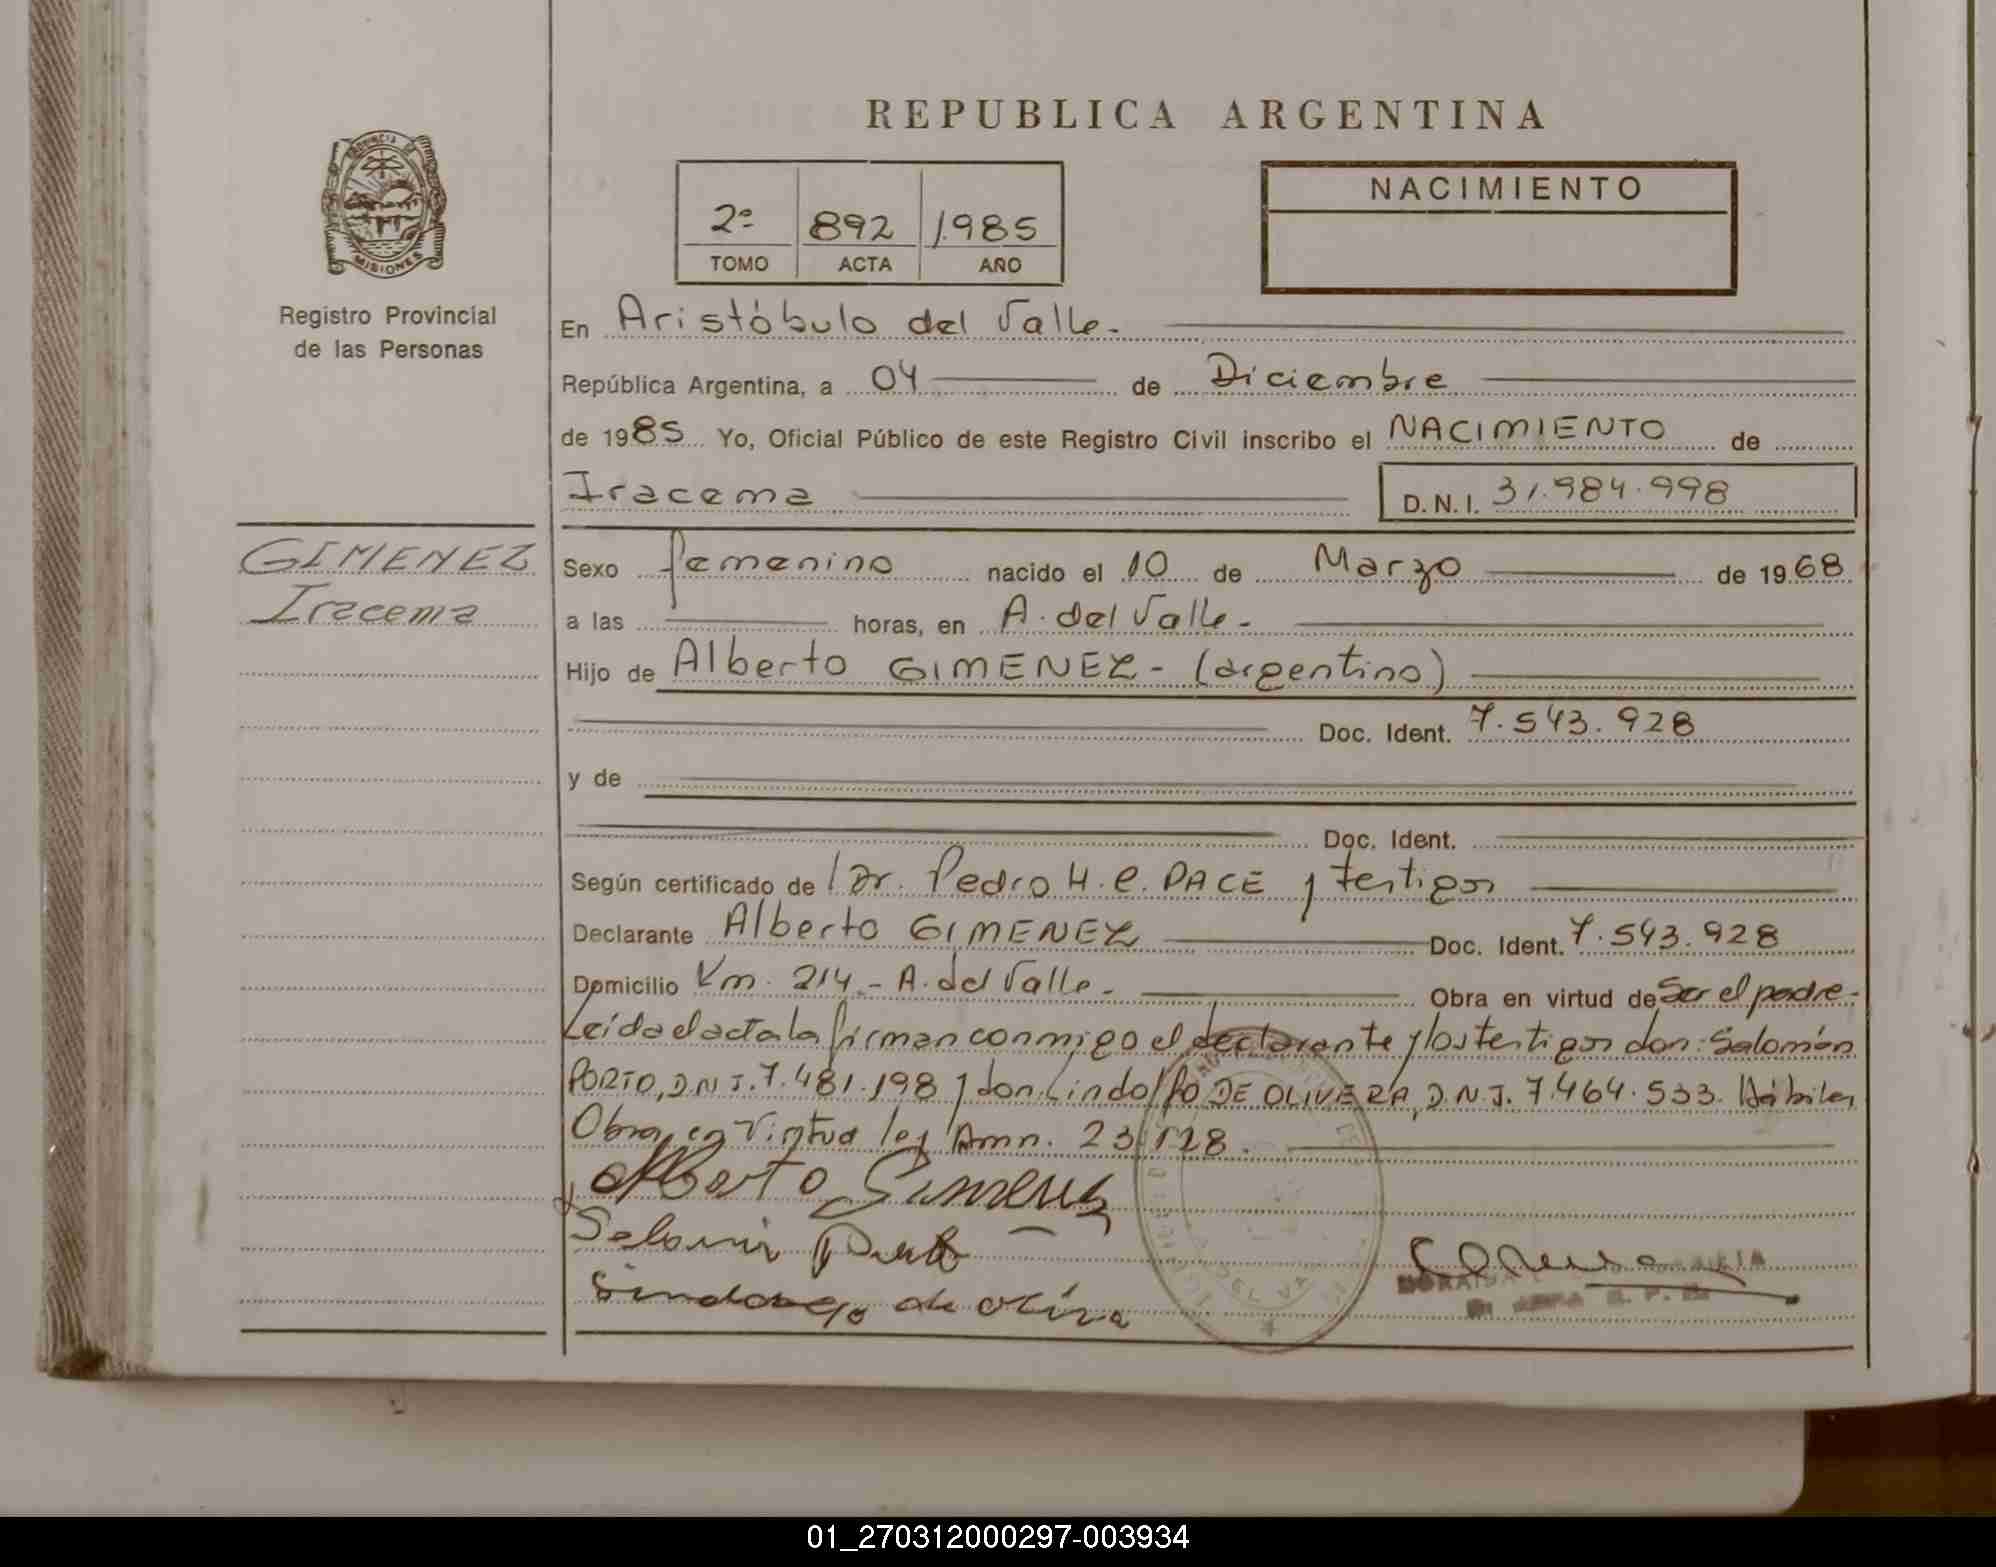 REPUBLICA ARGENTINA
PROVINCIA DE
MISIONES
Registro Provincial
de las Personas
2º 892 1985
TOMO ACTA AÑO
NACIMIENTO
En Aristóbulo del Valle.-
República Argentina, a 04 de Diciembre
de 1985 Yo, Oficial Público de este Registro Civil inscribo el NACIMIENTO de
Iracema D.N.I. 31.984.998
GIMENEZ
Iracema
Sexo femenino nacido el 10 de Marzo de 1968
a las horas, en A. del Valle.-
Hijo de Alberto GIMENEZ - (argentino)
Doc. Ident. 7.543.928
y de
Doc. Ident.
Según certificado de Dr. Pedro H. C. PACE y testigos
Declarante Alberto GIMENEZ Doc. Ident. 7.543.928
Domicilio Km. 214.- A. del Valle.- Obra en virtud de Ser el padre-
Leída el acta la firman conmigo el declarante y los testigos don: Salomón
PORTO, D.N.I. 7.481.198 y don Lindolfo DE OLIVERA, D.N.I. 7.464.533. Hábiles
Obra en virtud ley Amn. 23.128.
Alberto Gimenez
01_270312000297-003934